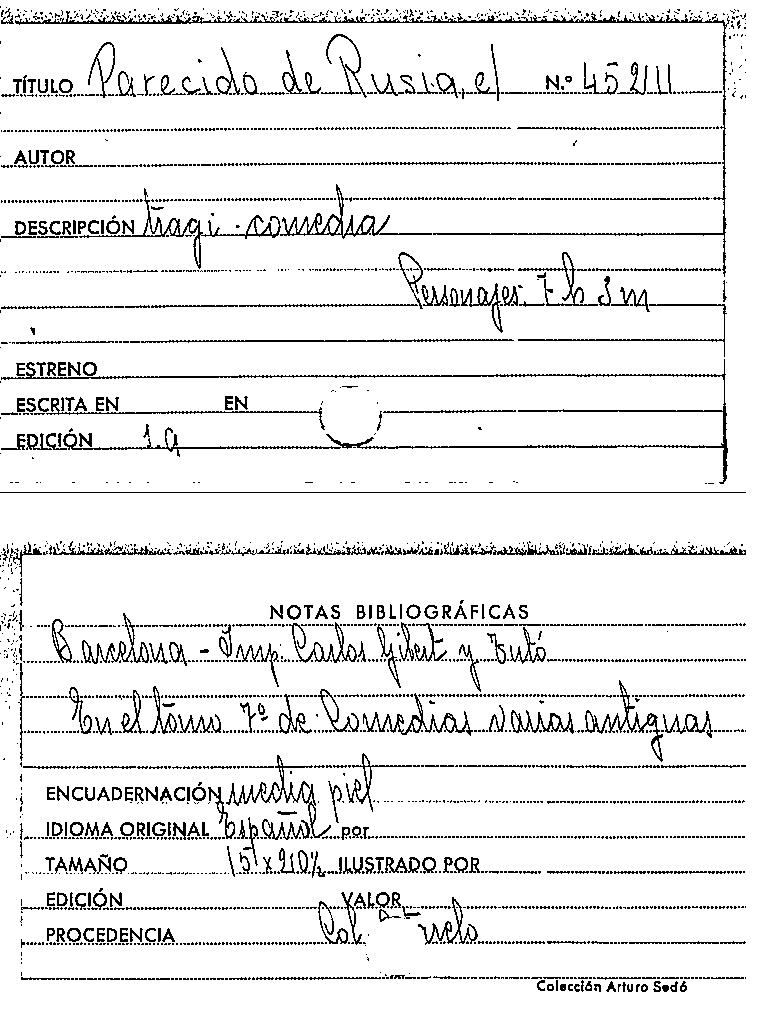 TÍTULO Parecido de Rusia, el N.º 45211
AUTOR
DESCRIPCIÓN tragi-comedia
Personajes: 7 h 3 m
ESTRENO
ESCRITA EN EN
EDICIÓN 1.a
NOTAS BIBLIOGRÁFICAS
Barcelona - Imp. Carlos Gibert y Tutó
En el tomo 7º de Comedias varias antiguas
ENCUADERNACIÓN media piel
IDIOMA ORIGINAL Español por
TAMAÑO 15 x 210½ ILUSTRADO POR
EDICIÓN VALOR
PROCEDENCIA Col.
Colección Arturo Sedó